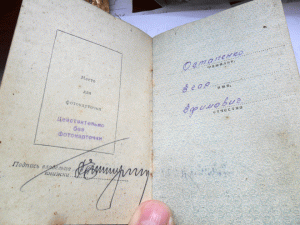 Место
для
фотокарточки
Действительно
без
фотокарточки
Подпись владельца
книжки
Остапенко
фамилия
имя,
Ефимович
отчество